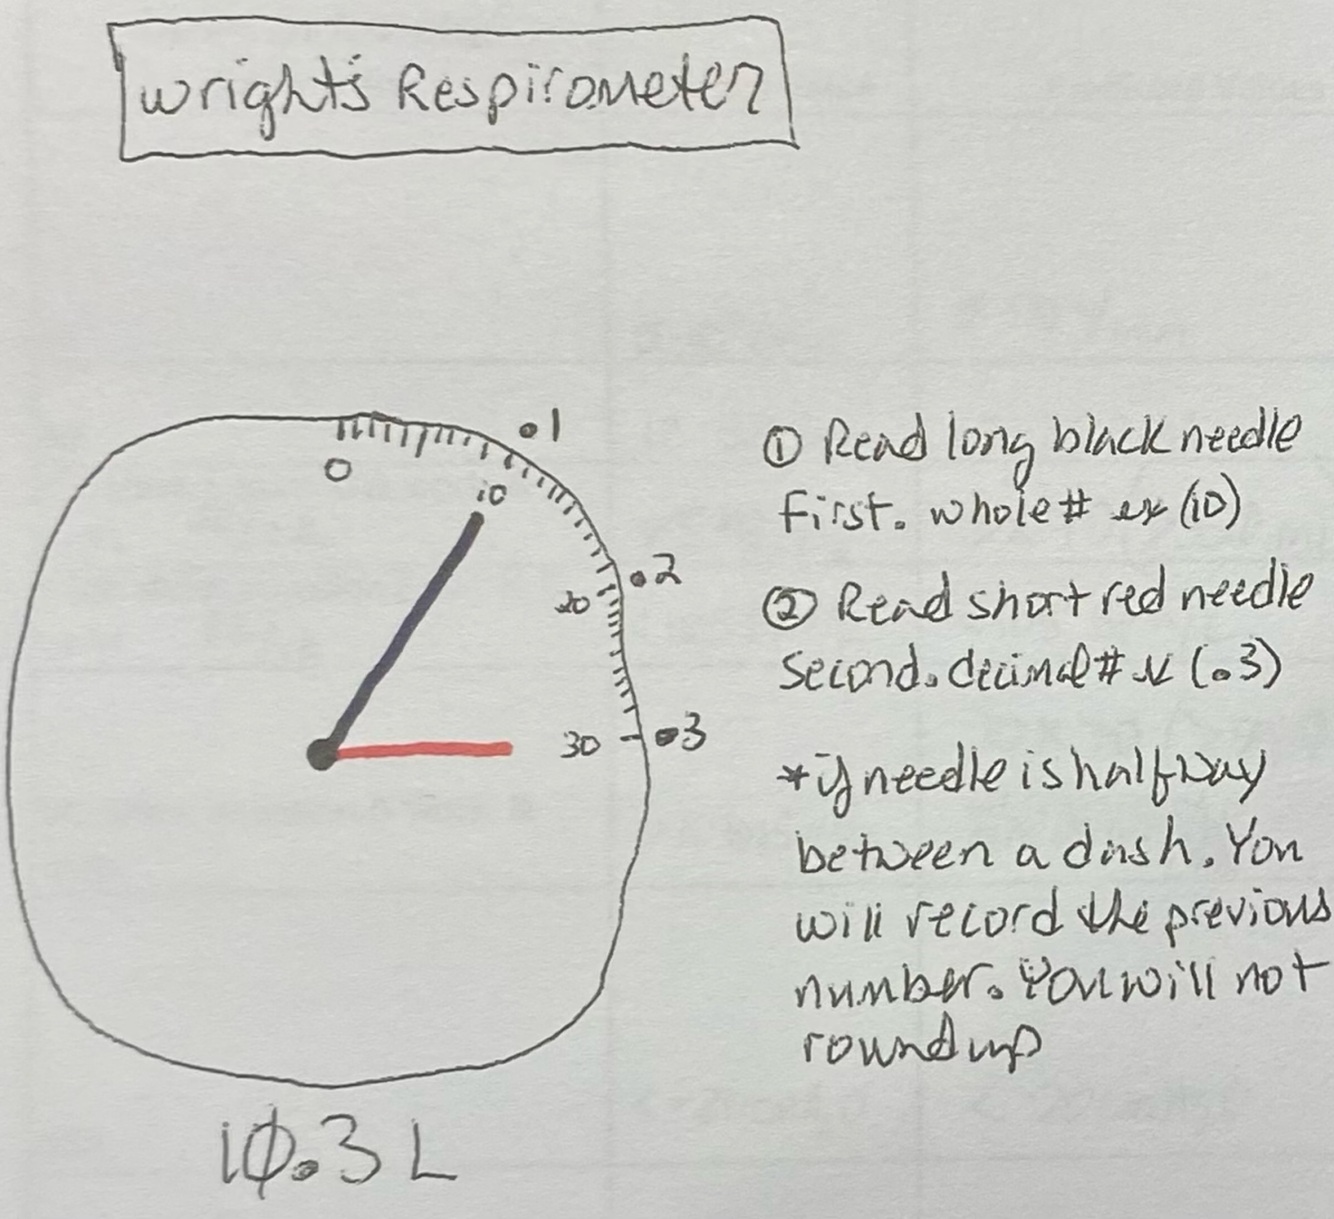 Wright's Respirometer
.1
0
10
.2
20
30
.3
① Read long black needle
First. whole # ex (10)
② Read short red needle
Second. decimal # ex (.3)
*if needle is halfway
between a dash. You
will record the previous
number. You will not
round up
10.3 L